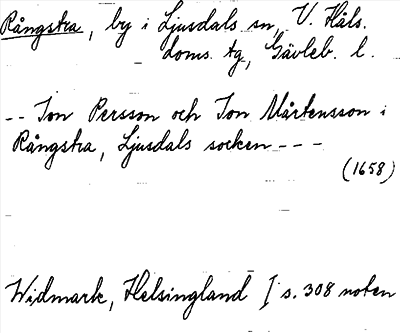 Rångstra, by i Ljusdals sn, V. Häls.
doms. tg, Gävleb. l.
-- Jon Persson och Jon Mårtensson i
Rångstra, Ljusdals socken ---
(1658)
Widmark, Helsingland I s. 308 noten